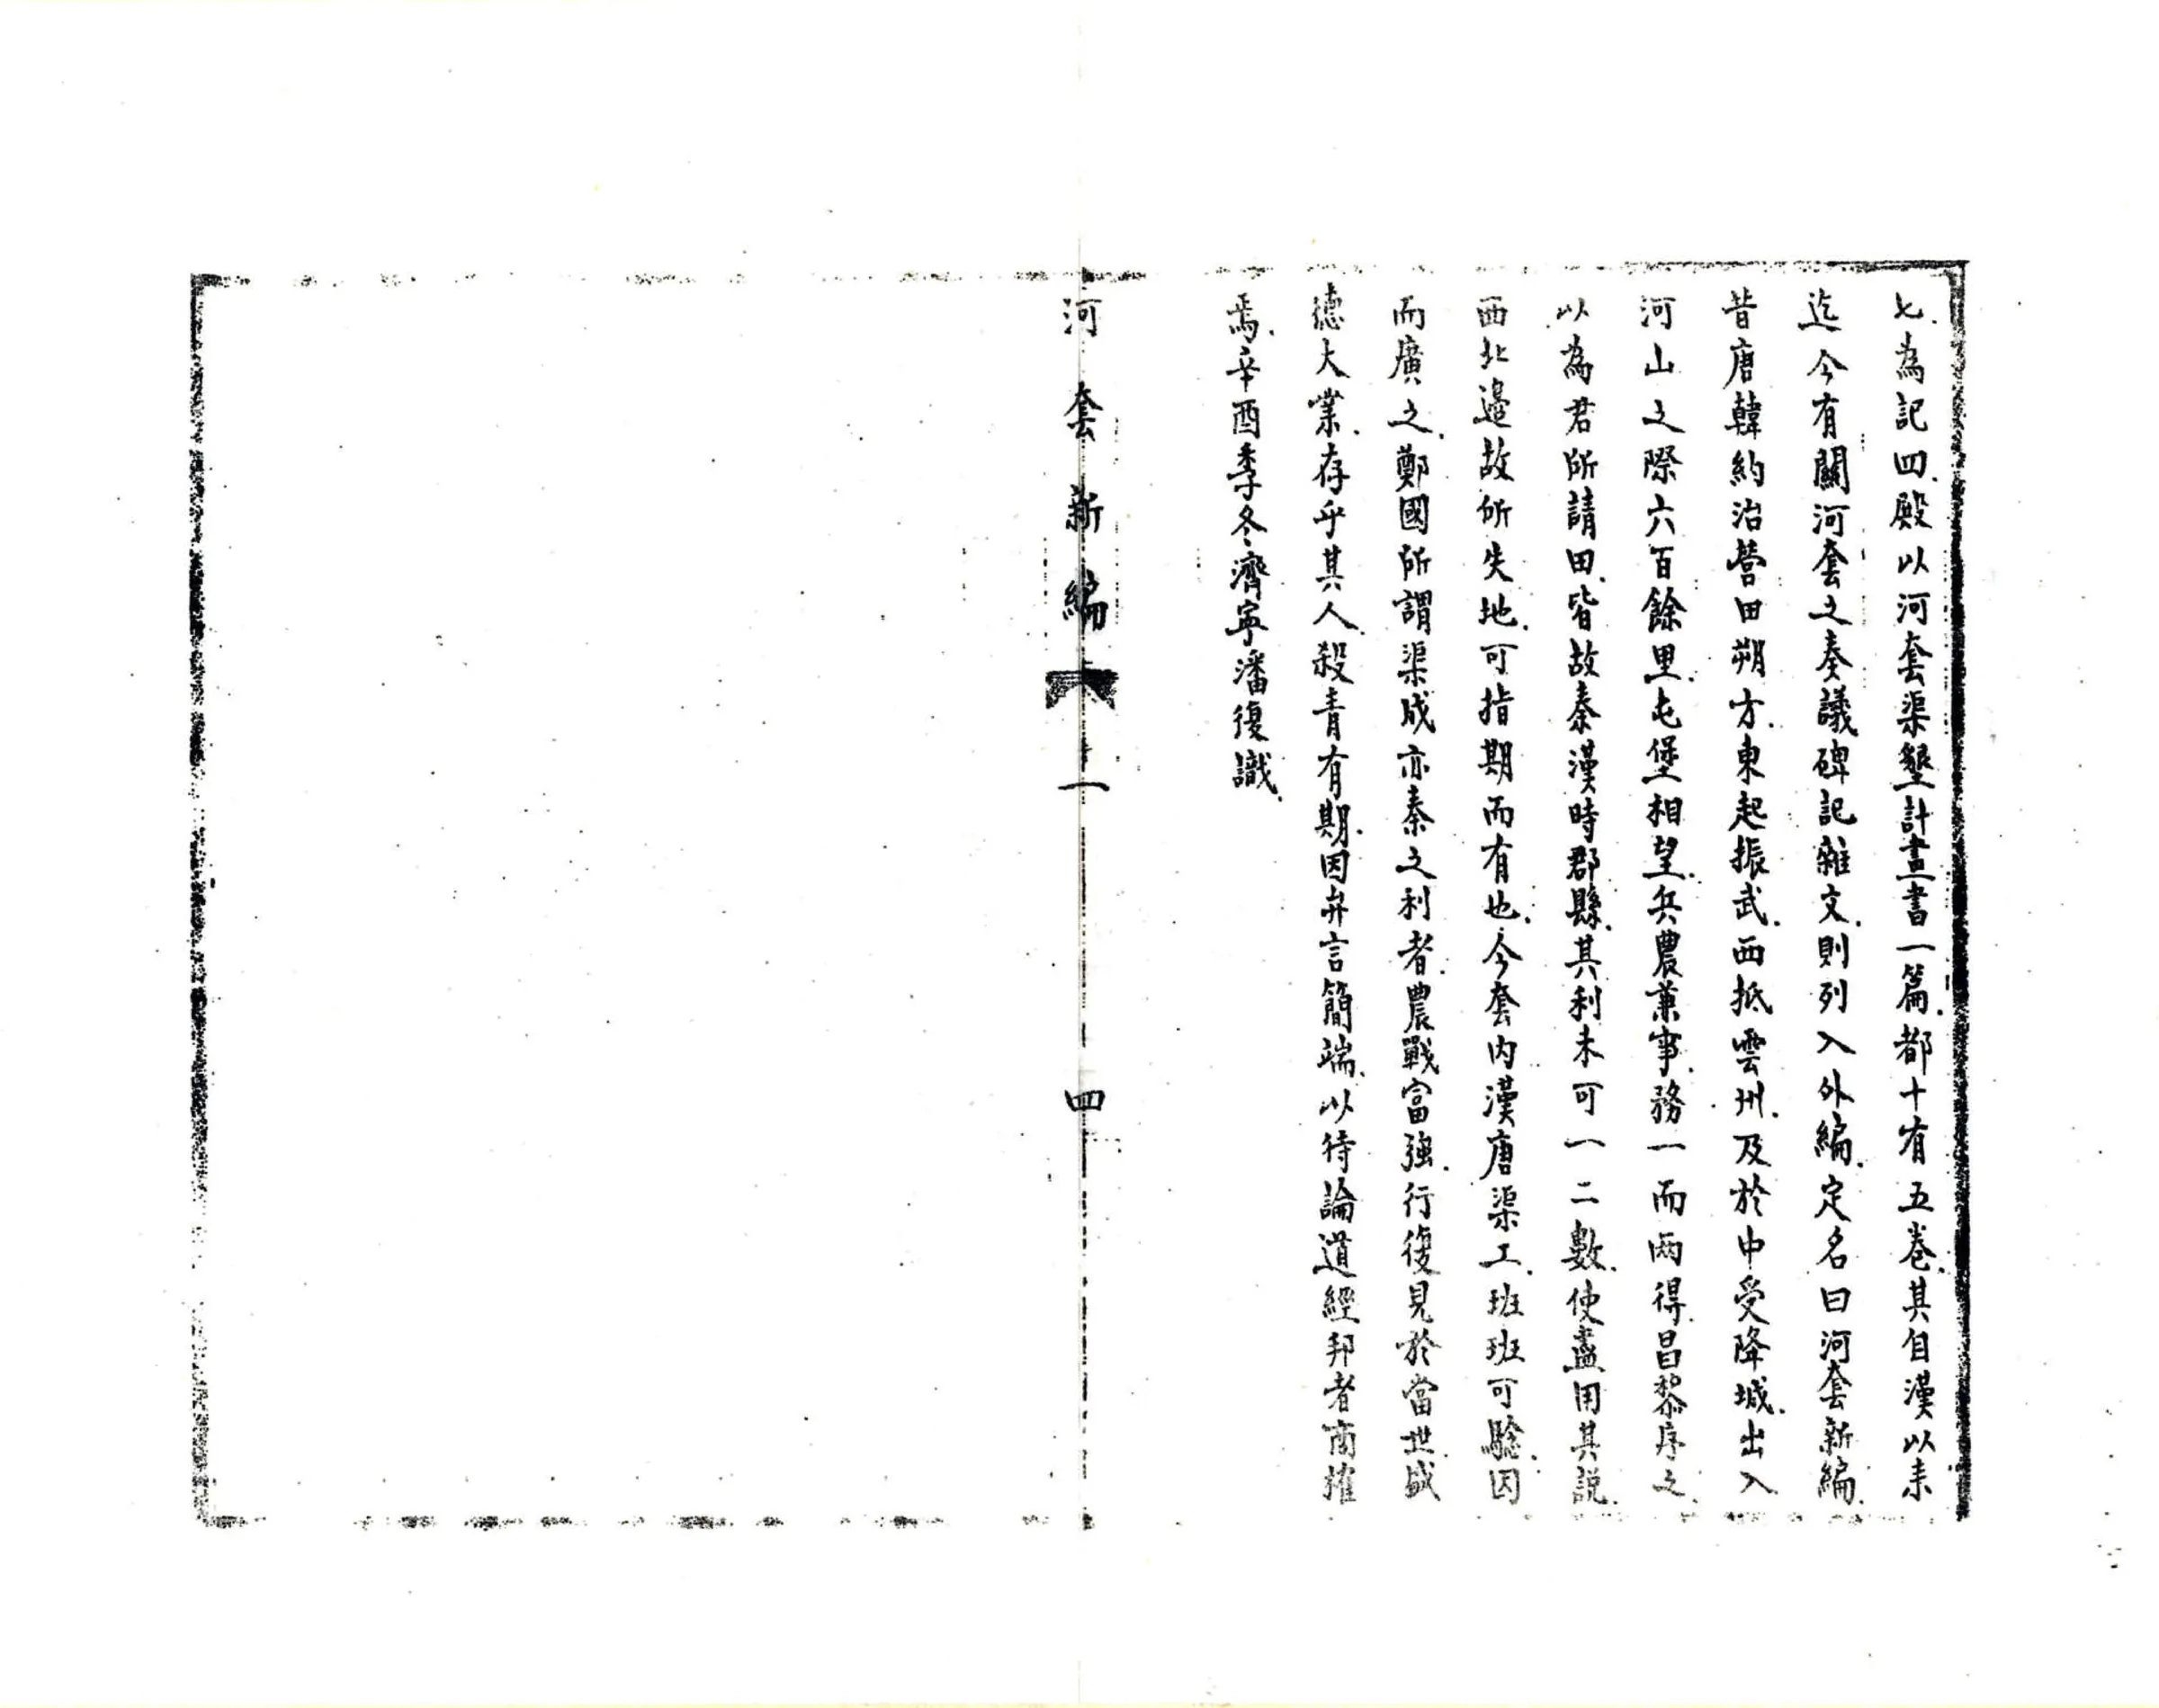 七.為記四.殿以河套渠墾計畫書一篇.都十有五卷.其自漢以来
迄今有關河套之奏議碑記雜文.則列入外編.定名曰河套新編.
昔唐韓約治營田朔方.東起振武.西抵雲州.及於中受降城.出入
河山之際六百餘里.屯堡相望.兵農兼事.務一而兩得.昌黎序之.
以為君所請田.皆故秦漢時郡縣.其利未可一二數.使盡用其説.
西北邊故所失地.可指期而有也.今套内漢唐渠工.班班可驗.因
而廣之.鄭國所謂渠成亦秦之利者.農戰富強.行復見於當世.盛
德大業.存乎其人.殺青有期.因弁言簡端.以待論道經邦者商榷
焉.辛酉季冬.濟寧潘復識.
河套新編
一
四